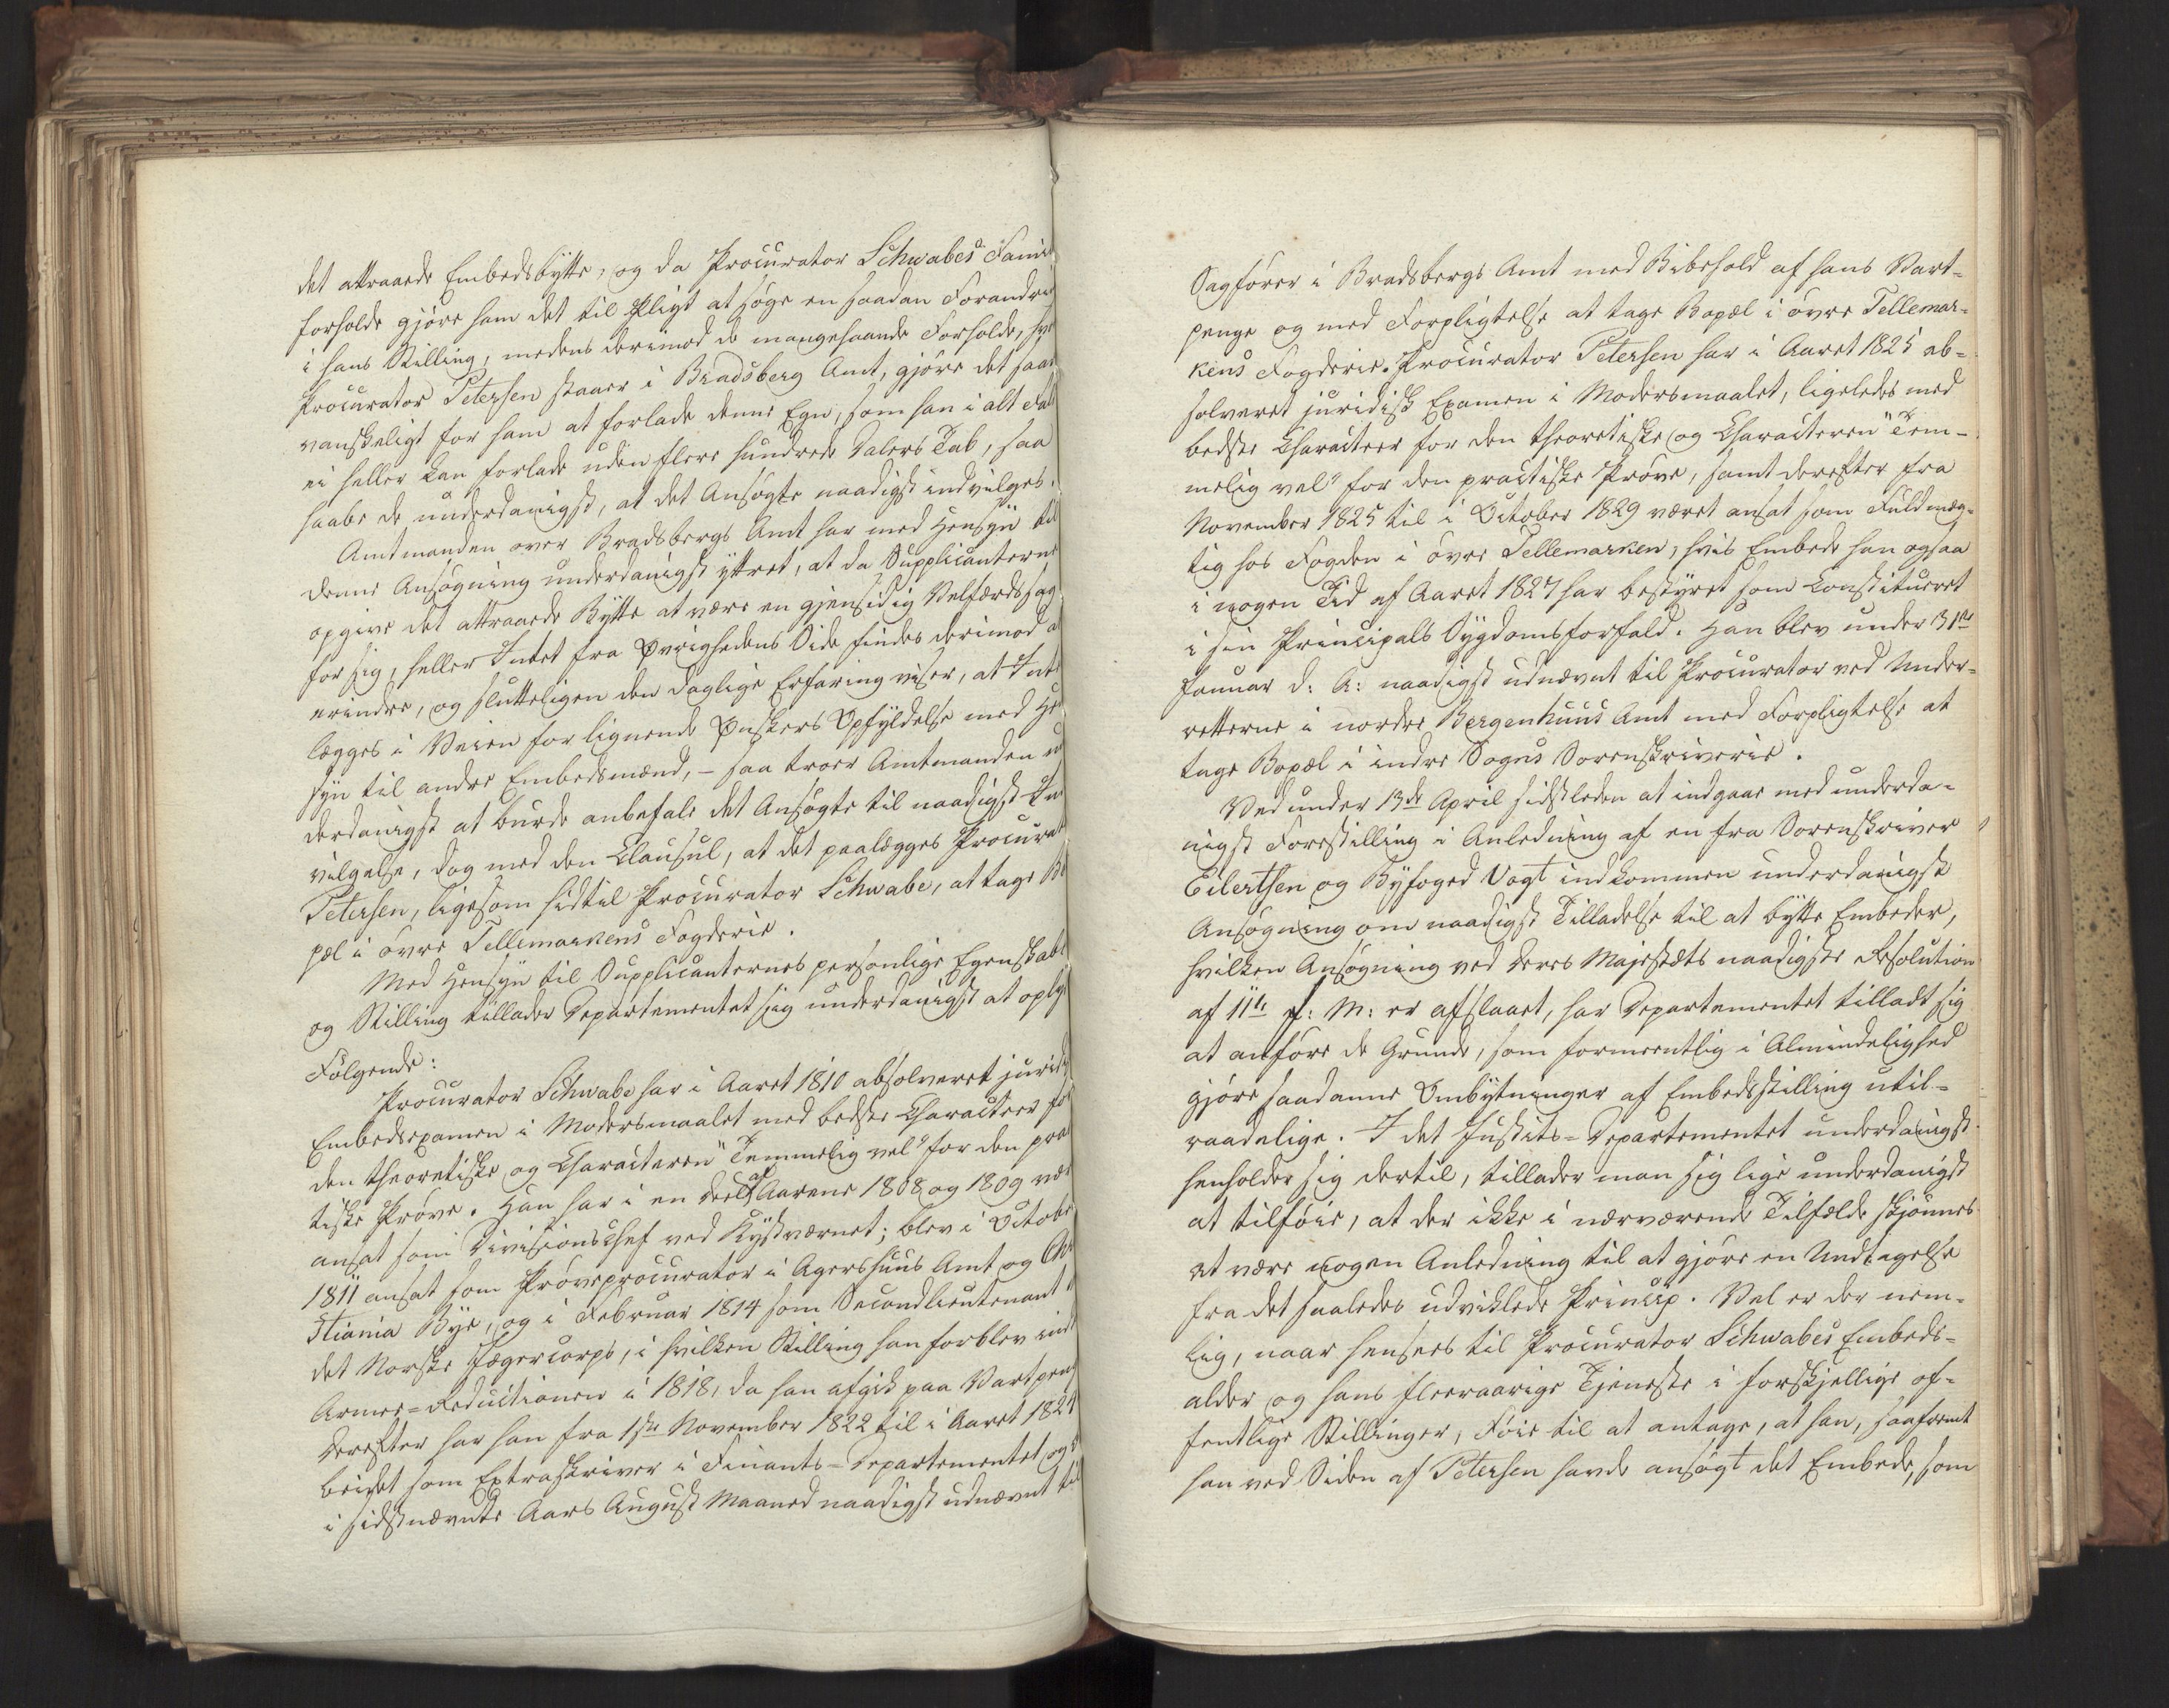 det attraaede Embedsbytte, og da Procurator Schwabes Fami
forholde gjøre ham det til Pligt at søge en saadan Forandri
i hans Stilling, medens derimod de mangehaande Forholde, hv
Procurator Petersen staaer i Bradsberg Amt, gjøre det saa
vanskeligt for ham at forlade denne Egn, som han i alt Fal
ei heller kan forlade uden flere hundrede Dalers Tab, saa
haabe de underdanigst, at det Ansøgte naadigst indvilges.
Amtmanden over Bradsbergs Amt har med Hensyn til
denne Ansøgning underdanigst yttret, at da Supplicanterne
opgive det attraaede Bytte at være en gjensidig Velfærdssag
for sig, heller Intet fra Øvrighedens Side findes derimod a
erindre, og slutteligen den daglige Erfaring viser, at Int
lægges i Veien for lignende Ønskers Opfyldelse med He
syn til andre Embedsmænd, – saa troer Amtmanden u
derdanigst at burde anbefale det Ansøgte til naadigst In
vilgelse, dog med den Clausul, at det paalægges Procurat
Petersen, ligesom hidtil Procurator Schwabe, at tage Bo
pæl i øvre Tellemarkens Fogderie.
Med Hensyn til Supplicanternes personlige Egenskabe
og Stilling tillader Departementet sig underdanigst at oply
Følgende:
Procurator Schwabe har i Aaret 1810 absolveret jurid
Embedsexamen i Modersmaalet med bedste Characteer fo
den theoretiske og Characteren "Temmelig vel" for den prac
tiske Prøve. Han har i en Deel af Aarene 1808 og 1809 vær
ansat som Divisionschef ved Kystværnet; blev i Octobe
1811 ansat som Prøveprocurator i Agershuus Amt og Chri
stiania Bye, og i Februar 1814 som Secondlieutenant v
det Norske Jægercorps, i hvilken Stilling han forblev ind
Armee-Reductionen i 1818, da han afgik paa Vartpen
Derefter har han fra 1ste November 1822 til i Aaret 182
beidet som Extraskriver i Finants-Departementet og
i sidstnævnte Aars August Maaned naadigst udnævnt til
Sagfører i Bradsbergs Amt med Bibehold af hans Vart-
penge og med Forpligtelse at tage Bopæl i øvre Tellemar-
kens Fogderie. Procurator Petersen har i Aaret 1825 ab-
solveret juridisk Examen i Modersmaalet, ligeledes med
bedste Characteer for den theoretiske og Characteren "Tem-
melig vel" for den practiske Prøve, samt derefter fra
November 1825 til i October 1829 været ansat som Fuldmæg-
tig hos Fogden i øvre Tellemarken, hvis Embede han ogsaa
i nogen Tid af Aaret 1827 har bestyret som Constitueret
i sin Principals Sygdomsforfald. Han blev under 31te
Januar d: A: naadigst udnævnt til Procurator ved Under-
retterne i nordre Bergenhuus Amt med Forpligtelse at
tage Bopæl i indre Sogns Sorenskriverie.
Ved under 13de April sidstleden at indgaae med underda-
nigst Forestilling i Anledning af en fra Sorenskriver
Eilertsen og Byfoged Vogt indkommen underdanigst
Ansøgning om naadigst Tilladelse til at bytte Embeder,
hvilken Ansøgning ved Deres Majestæts naadigste Resolution
af 11te f: M: er afslaaet, har Departementet tilladt sig
at anføre de Grunde, som formeentlig i Almindelighed
gjøre saadanne Ombytninger af Embedsstilling util-
raadelige. I det Justits-Departementet underdanigst
henholder sig dertil, tillader man sig lige underdanigst
at tilføie, at der ikke i nærværende Tilfælde skjønnes
at være nogen Anledning til at gjøre en Undtagelse
fra det saaledes udviklede Princip. Vel er der nem-
lig, naar hensees til Procurator Schwabes Embeds-
alder og hans fleeraarige Tjeneste i forskjellige of-
fentlige Stillinger, Føie til at antage, at han, saafremt
han ved Siden af Petersen havde ansøgt det Embede, som